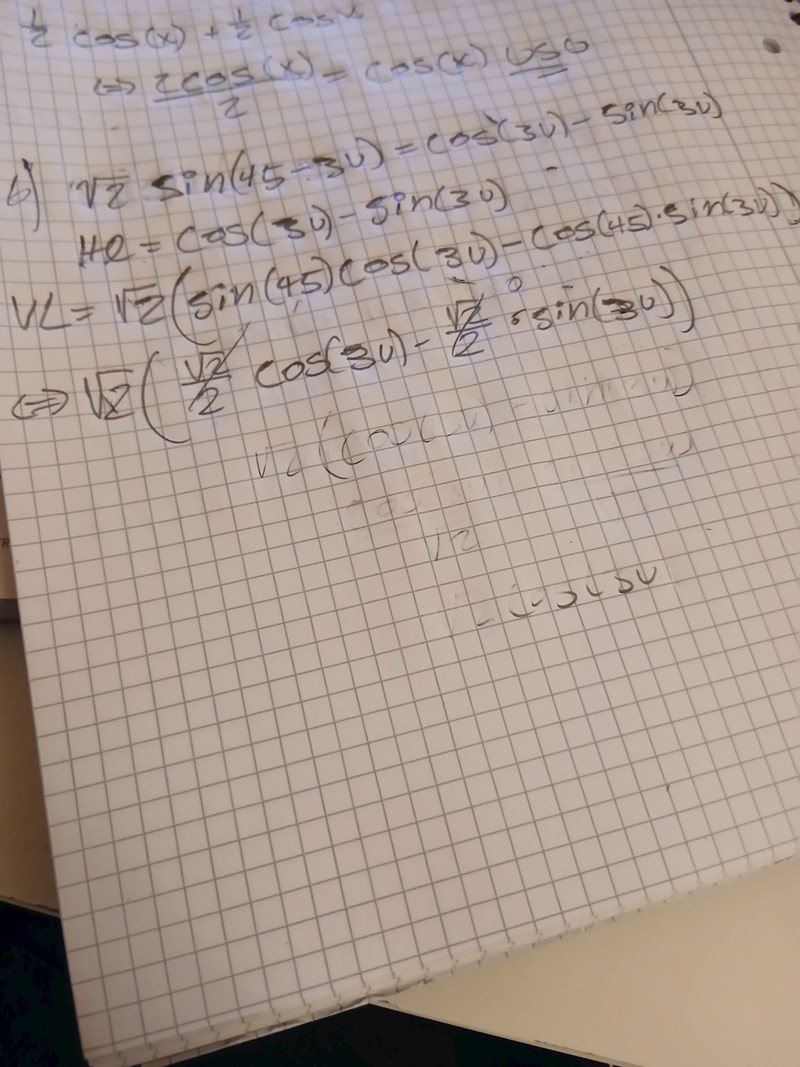 1/2 cos(x) + 1/2 cos x
⇔ 2cos(x)/2 = cos(x) VSB
b) √2 sin(45-3v) = cos(3v) - sin(3v)
HL = cos(3v) - sin(3v)
VL = √2(sin(45)cos(3v) - cos(45)·sin(3v))
⇔ √2(√2/2 cos(3v) - √2/2 · sin(3v))
√2